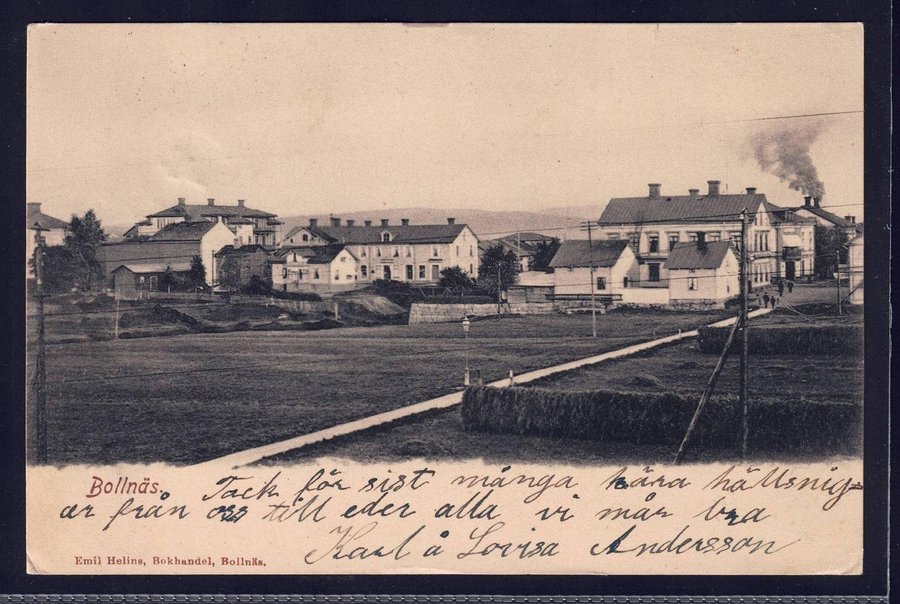 Bollnäs. Tack för sist många kära hällsnig=
ar från oss till eder alla vi mår bra
Karl å Lovisa Andersson
Emil Helins, Bokhandel, Bollnäs.